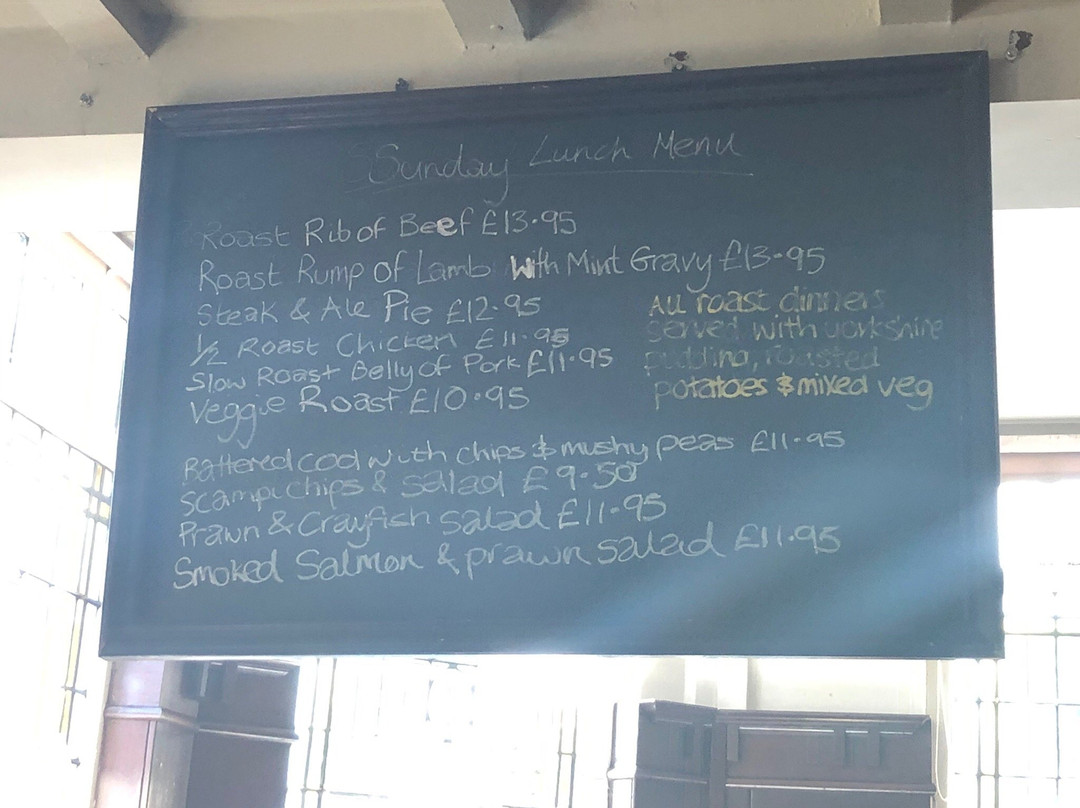 Sunday Lunch Menu
Roast Rib of Beef £13.95
Roast Rump of Lamb with Mint Gravy £13.95
Steak & Ale Pie £12.95
1/2 Roast Chicken £11.95
Slow Roast Belly of Pork £11.95
Veggie Roast £10.95
All roast dinners
served with yorkshire
pudding, roasted
potatoes & mixed veg
Battered cod with chips & mushy peas £11.95
Scampi chips & salad £9.50
Prawn & Crayfish salad £11.95
Smoked Salmon & prawn salad £11.95